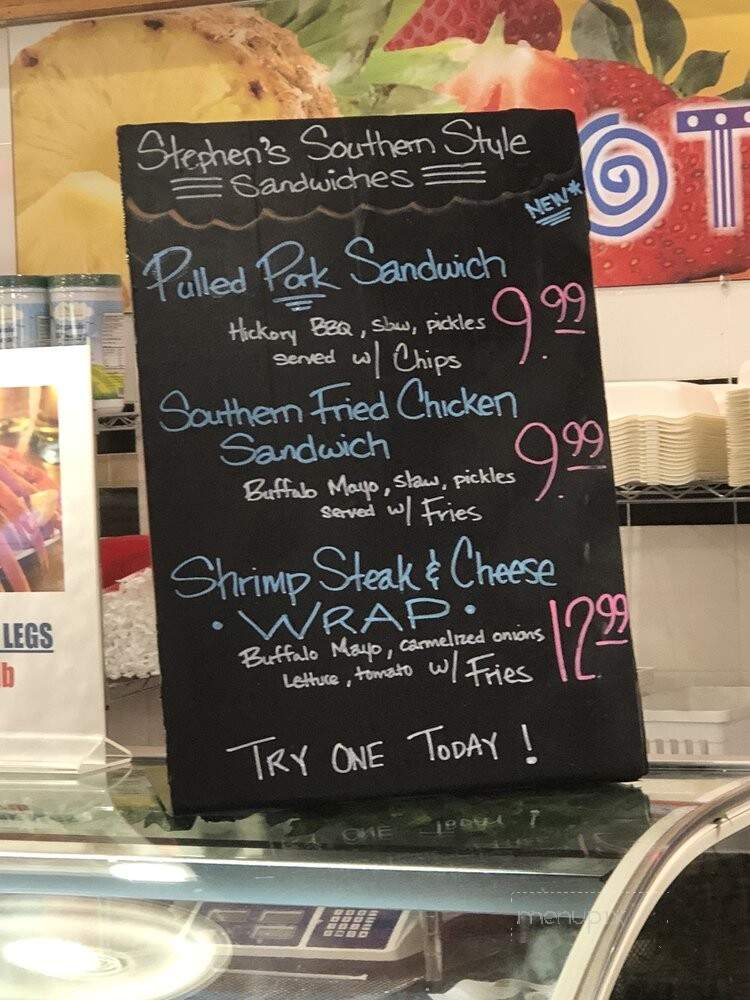 Stephen's Southern Style
Sandwiches
NEW*
Pulled Pork Sandwich
Hickory BBQ, slaw, pickles
served w/ Chips
9.99
Southern Fried Chicken
Sandwich
Buffalo Mayo, slaw, pickles
served w/ Fries
9.99
Shrimp Steak & Cheese
• WRAP •
Buffalo Mayo, carmelized onions
Lettuce, tomato w/ Fries
12.99
TRY ONE TODAY!
LEGS
lb
OT